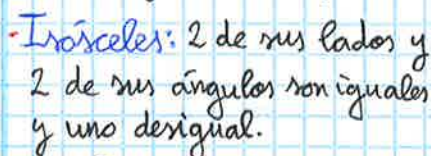 - Isósceles: 2 de sus lados y
2 de sus ángulos son iguales
y uno desigual.